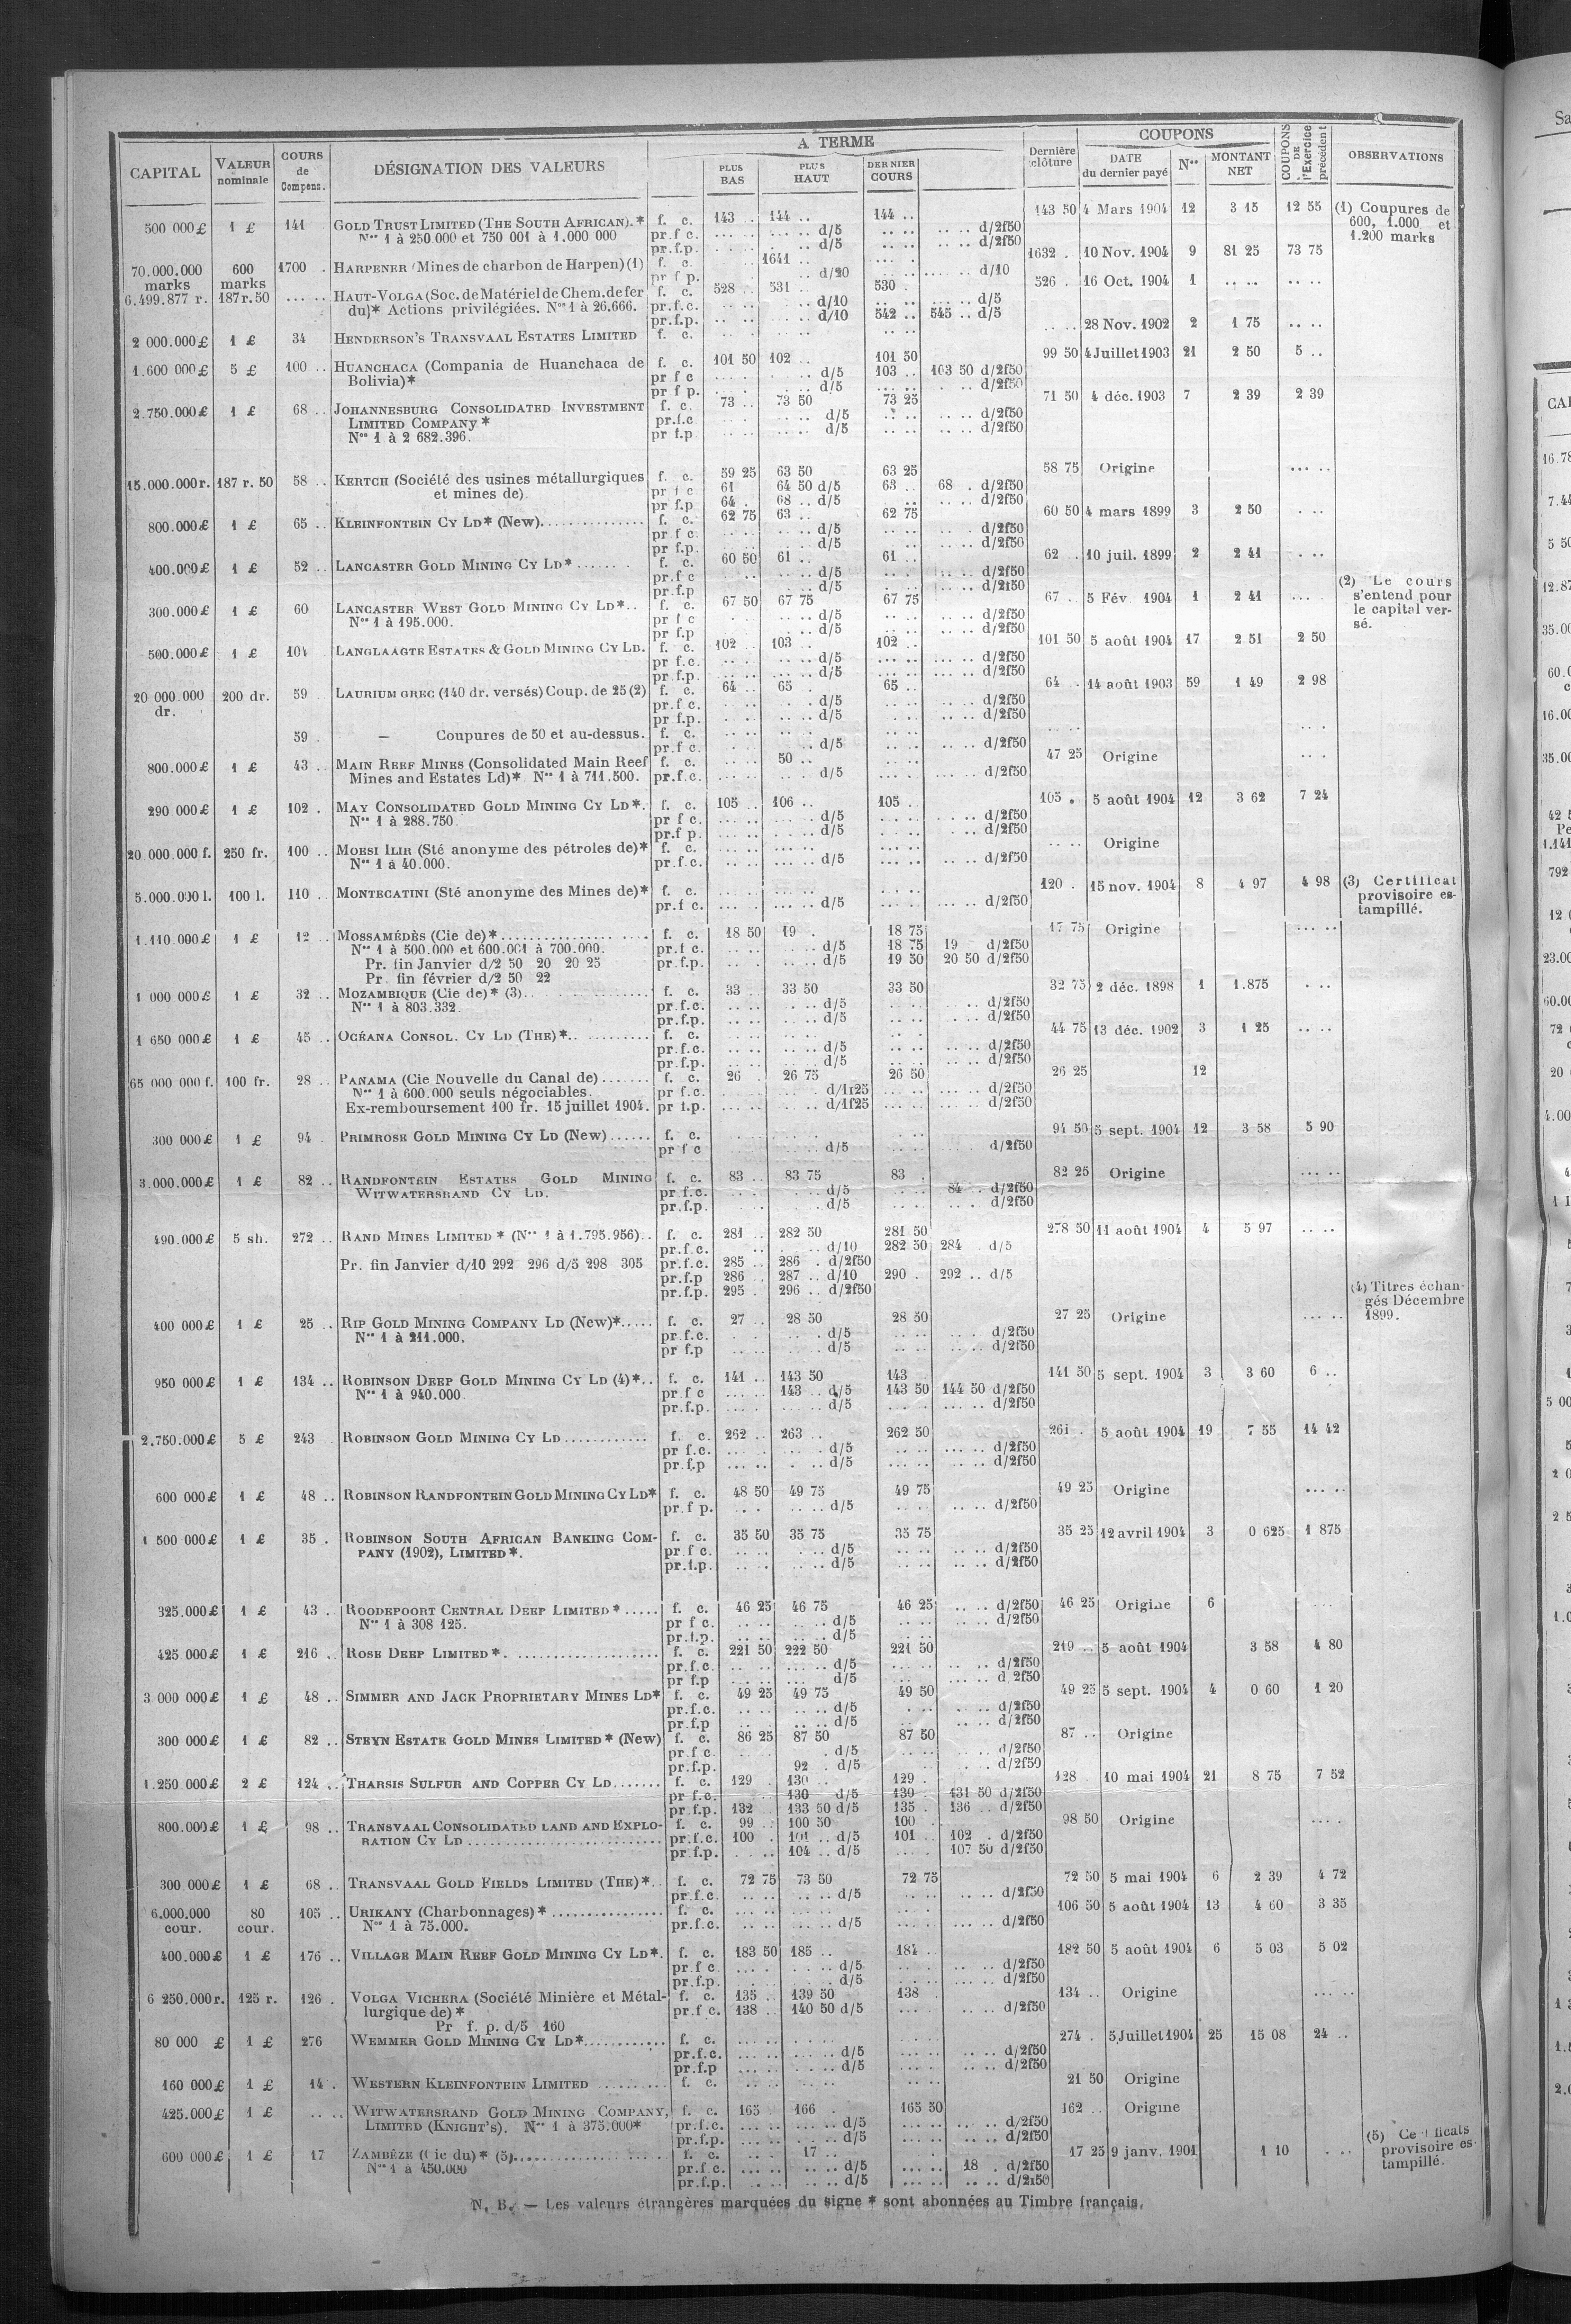 A TERME
COUPONS
CAPITAL VALEUR nominale COURS de Compens. DÉSIGNATION DES VALEURS PLUS BAS PLUS HAUT DERNIER COURS Dernière clôture DATE du dernier payé Nos MONTANT NET COUPONS DE l'Exercice précédent OBSERVATIONS
500 000 £ 1 £ 141 GOLD TRUST LIMITED (THE SOUTH AFRICAN).* f. c. 143 .. 144 .. 144 .. 143 50 4 Mars 1904 12 3 15 12 55 (1) Coupures de
Nos 1 à 250.000 et 750 001 à 1.000 000 pr.f c. d/5 d/2f50 600, 1.000 et
pr.f.p. d/5 d/2f50 1.200 marks
70.000.000 marks 600 marks 1700 . HARPENER (Mines de charbon de Harpen) (1) f. c. 1641 .. 1632 . 10 Nov. 1904 9 81 25 73 75
pr f p. d/20 d/10
6.499.877 r. 187 r. 50 ... .. HAUT-VOLGA (Soc. de Matériel de Chem. de fer f. c. 528 .. 531 .. 530 . 526 . 16 Oct. 1904 1 .. .. .. ..
du)* Actions privilégiées. Nos 1 à 26.666. pr.f.c. d/10 d/5
pr.f.p. d/10 542 .. 545 .. d/5
2 000.000 £ 1 £ 34 HENDERSON'S TRANSVAAL ESTATES LIMITED f. c. 28 Nov. 1902 2 1 75 .. ..
1.600 000 £ 5 £ 100 .. HUANCHACA (Compania de Huanchaca de f. c. 101 50 102 .. 101 50 99 50 4 Juillet 1903 21 2 50 5 ..
Bolivia)* pr f c d/5 103 .. 103 50 d/2f50
pr f p. d/5 d/2f50
2.750.000 £ 1 £ 68 .. JOHANNESBURG CONSOLIDATED INVESTMENT f. c. 73 .. 73 50 73 25 71 50 4 déc. 1903 7 2 39 2 39
LIMITED COMPANY * pr.f.c d/5 d/2f50
Nos 1 à 2 682.396. pr f.p d/5 d/2f50
15.000.000 r. 187 r. 50 58 .. KERTCH (Société des usines métallurgiques f. c. 59 25 63 50 63 25 58 75 Origine ... ..
et mines de). pr f c 61 64 50 d/5 63 .. 68 . d/2f50
pr f.p 64 . 68 .. d/5 d/2f50
800.000 £ 1 £ 65 .. KLEINFONTEIN CY LD* (New) f. c. 62 75 63 .. 62 75 60 50 4 mars 1899 3 2 50
pr f c. d/5 d/2f50
pr f.p. d/5 d/2f50
400.000 £ 1 £ 52 .. LANCASTER GOLD MINING CY LD* f. c. 60 50 61 .. 61 .. 62 .. 10 juil. 1899 2 2 41
pr.f c d/5 d/2f50 (2) Le cours
pr.f.p d/5 d/2f50 s'entend pour
300.000 £ 1 £ 60 LANCASTER WEST GOLD MINING CY LD*.. f. c. 67 50 67 75 67 75 67 . 5 Fév. 1904 1 2 41 le capital ver-
Nos 1 à 195.000. pr f c d/5 d/2f50 sé.
pr f.p d/5 d/2f50
500.000 £ 1 £ 104 LANGLAAGTE ESTATES & GOLD MINING CY LD. f. c. 102 .. 103 .. 102 .. 101 50 5 août 1904 17 2 51 2 50
pr f.c. d/5 d/2f50
pr f.p. d/5 d/2f50
20 000.000 dr. 200 dr. 59 LAURIUM GREC (140 dr. versés) Coup. de 25 (2) f. c. 64 .. 65 . 65 .. 64 .. 14 août 1903 59 1 49 2 98
pr.f c. d/5 d/2f50
pr f.p. d/5 d/2f50
59 . — Coupures de 50 et au-dessus. f. c.
pr.f c. d/5 d/2f50
800.000 £ 1 £ 43 .. MAIN REEF MINES (Consolidated Main Reef f. c. 50 .. 47 25 Origine
Mines and Estates Ld)* Nos 1 à 711.500. pr.f.c. d/5 d/2f50
290 000 £ 1 £ 102 . MAY CONSOLIDATED GOLD MINING CY LD*. f. c. 105 .. 106 .. 105 . 105 . 5 août 1904 12 3 62 7 24
Nos 1 à 288.750. pr f c. d/5 d/2f50
pr.f p. d/5 d/2f50
20 000.000 f. 250 fr. 100 .. MOESI ILIR (Sté anonyme des pétroles de)* f. c. Origine
Nos 1 à 40.000. pr.f.c. d/5 d/2f50
5.000.000 l. 100 l. 110 .. MONTECATINI (Sté anonyme des Mines de)* f. c. 120 . 15 nov. 1904 8 4 97 4 98 (3) Certificat
pr.f c. d/5 d/2f50 provisoire es-
tampillé.
1.110.000 £ 1 £ 12 .. MOSSAMÉDÈS (Cie de)* f. c. 18 50 19 . 18 75 17 75 Origine
Nos 1 à 500.000 et 600.001 à 700.000. pr.f c. d/5 18 75 19 d/2f50
Pr. fin Janvier d/2 50 20 20 25 pr.f.p. d/5 19 50 20 50 d/2f50
Pr. fin février d/2 50 22
1 000 000 £ 1 £ 32 .. MOZAMBIQUE (Cie de)* (3) f. c. 33 .. 33 50 33 50 32 75 2 déc. 1898 1 1.875
Nos 1 à 803.332. pr.f.c. d/5 d/2f50
pr.f.p. d/5 d/2f50
1 650 000 £ 1 £ 45 .. OCÉANA CONSOL. CY LD (THE)* f. c. 44 75 13 déc. 1902 3 1 25
pr.f.c. d/5 d/2f50
pr.f.p. d/5 d/2f50
65 000 000 f. 100 fr. 28 .. PANAMA (Cie Nouvelle du Canal de) f. c. 26 . 26 75 26 50 26 25 12
Nos 1 à 600.000 seuls négociables. pr f.c. d/1f25 d/2f50
Ex-remboursement 100 fr. 15 juillet 1904. pr f.p. d/1f25 d/2f50
300 000 £ 1 £ 94 . PRIMROSE GOLD MINING CY LD (New) f. c. 94 50 5 sept. 1904 12 3 58 5 90
pr f c d/5 d/2f50
3.000.000 £ 1 £ 82 .. RANDFONTEIN ESTATES GOLD MINING f. c. 83 .. 83 75 83 . 82 25 Origine
WITWATERSRAND CY LD. pr f.c. d/5 84 .. d/2f50
pr.f.p. d/5 d/2f50
490.000 £ 5 sh. 272 .. RAND MINES LIMITED * (Nos 1 à 1.795.956).. f. c. 281 .. 282 50 281 50 278 50 11 août 1904 4 5 97
pr.f.c. d/10 282 50 284 . d/5
Pr. fin Janvier d/10 292 296 d/5 298 305 pr.f.c. 285 .. 286 . d/2f50
pr.f.p 286 .. 287 .. d/10 290 . 292 .. d/5
pr.f.p. 295 . 296 .. d/2f50 (4) Titres échan-
gés Décembre
400 000 £ 1 £ 25 .. RIP GOLD MINING COMPANY LD (New)* f. c. 27 .. 28 50 28 50 27 25 Origine 1899.
Nos 1 à 211.000. pr.f.c. d/5 d/2f50
pr f.p d/5 d/2f50
950 000 £ 1 £ 134 .. ROBINSON DEEP GOLD MINING CY LD (4)*.. f. c. 141 .. 143 50 143 . 141 50 5 sept. 1904 3 3 60 6 ..
Nos 1 à 940.000. pr.f c 143 .. d/5 143 50 144 50 d/2f50
pr.f.p. d/5 d/2f50
2.750.000 £ 5 £ 243 ROBINSON GOLD MINING CY LD f. c. 262 .. 263 .. 262 50 261 . 5 août 1904 19 7 55 14 42
pr f.c. d/5 d/2f50
pr.f.p d/5 d/2f50
600 000 £ 1 £ 48 .. ROBINSON RANDFONTEIN GOLD MINING CY LD* f. c. 48 50 49 75 49 75 49 25 Origine
pr.f p. d/5 d/2f50
1 500 000 £ 1 £ 35 . ROBINSON SOUTH AFRICAN BANKING COM- f. c. 35 50 35 75 35 75 35 25 12 avril 1904 3 0 625 1 875
PANY (1902), LIMITED *. pr.f c. d/5 d/2f50
pr.f.p. d/5 d/2f50
325.000 £ 1 £ 43 . ROODEPOORT CENTRAL DEEP LIMITED * f. c. 46 25 46 75 46 25 d/2f50 46 25 Origine 6
Nos 1 à 308 125. pr f c. d/5 d/2f50
pr.f.p. d/5
425 000 £ 1 £ 216 .. ROSE DEEP LIMITED * f. c. 221 50 222 50 221 50 219 .. 5 août 1904 3 58 4 80
pr.f.c. d/5 d/2f50
pr f.p d/5 d 2f50
3 000 000 £ 1 £ 48 .. SIMMER AND JACK PROPRIETARY MINES LD* f. c. 49 25 49 75 49 50 49 25 5 sept. 1904 4 0 60 1 20
pr.f.c. d/5 d/2f50
pr.f.p d/5 d/2f50
300 000 £ 1 £ 82 .. STEYN ESTATE GOLD MINES LIMITED * (New) f. c. 86 25 87 50 87 50 87 .. Origine
pr f c. d/5 d/2f50
pr.f.p. 92 . d/5 d/2f50
1.250 000 £ 2 £ 124 .. THARSIS SULFUR AND COPPER CY LD f. c. 129 . 130 .. 129 . 128 10 mai 1904 21 8 75 7 52
pr f.c. 130 d/5 130 . 131 50 d/2f50
pr.f.p. 132 .. 133 50 d/5 135 . 136 .. d/2f50
800.000 £ 1 £ 98 .. TRANSVAAL CONSOLIDATED LAND AND EXPLO- f. c. 99 .. 100 50 100 . 98 50 Origine
RATION CY LD pr.f.c. 100 . 101 .. d/5 101 .. 102 . d/2f50
pr f.p. 104 .. d/5 107 50 d/2f50
300 000 £ 1 £ 68 .. TRANSVAAL GOLD FIELDS LIMITED (THE)*.. f. c. 72 75 73 50 72 75 72 50 5 mai 1904 6 2 39 4 72
pr.f.c. d/5 d/2f50
6.000.000 cour. 80 cour. 105 .. URIKANY (Charbonnages) * f. c. 106 50 5 août 1904 13 4 60 3 35
Nos 1 à 75.000. pr.f.c. d/5 d/2f50
400.000 £ 1 £ 176 .. VILLAGE MAIN REEF GOLD MINING CY LD*. f. c. 183 50 185 .. 184 . 182 50 5 août 1904 6 5 03 5 02
pr f c d/5 d/2f50
pr.f.p. d/5 d/2f50
6 250.000 r. 125 r. 126 . VOLGA VICHERA (Société Minière et Métal- f. c. 135 .. 139 50 138 . 134 .. Origine
lurgique de) * pr.f c. 138 .. 140 50 d/5 d/2f50
Pr f. p. d/5 160
80 000 £ 1 £ 276 WEMMER GOLD MINING CY LD* f. c. 274 . 5 Juillet 1904 25 15 08 24 ..
pr.f.c. d/5 d/2f50
pr.f.p d/5 d/2f50
160 000 £ 1 £ 14 . WESTERN KLEINFONTEIN LIMITED f. c. 21 50 Origine
425.000 £ 1 £ .. .. WITWATERSRAND GOLD MINING COMPANY, f. c. 165 166 . 165 50 162 .. Origine
LIMITED (KNIGHT'S). Nos 1 à 375.000* pr.f.c. d/5 d/2f50
pr.f.p. d/5 d/2f50 (5)
600 000 £ 1 £ 17 ZAMBÈZE (Cie du)* (5) f. c. 17 .. 17 25 9 janv. 1901 1 10 provisoire es-
Nos 1 à 450.000 pr.f.c. d/5 18 . d/2f50 tampillé.
pr.f.p. d/5 d/2f50
N. B. — Les valeurs étrangères marquées du signe * sont abonnées au Timbre français.